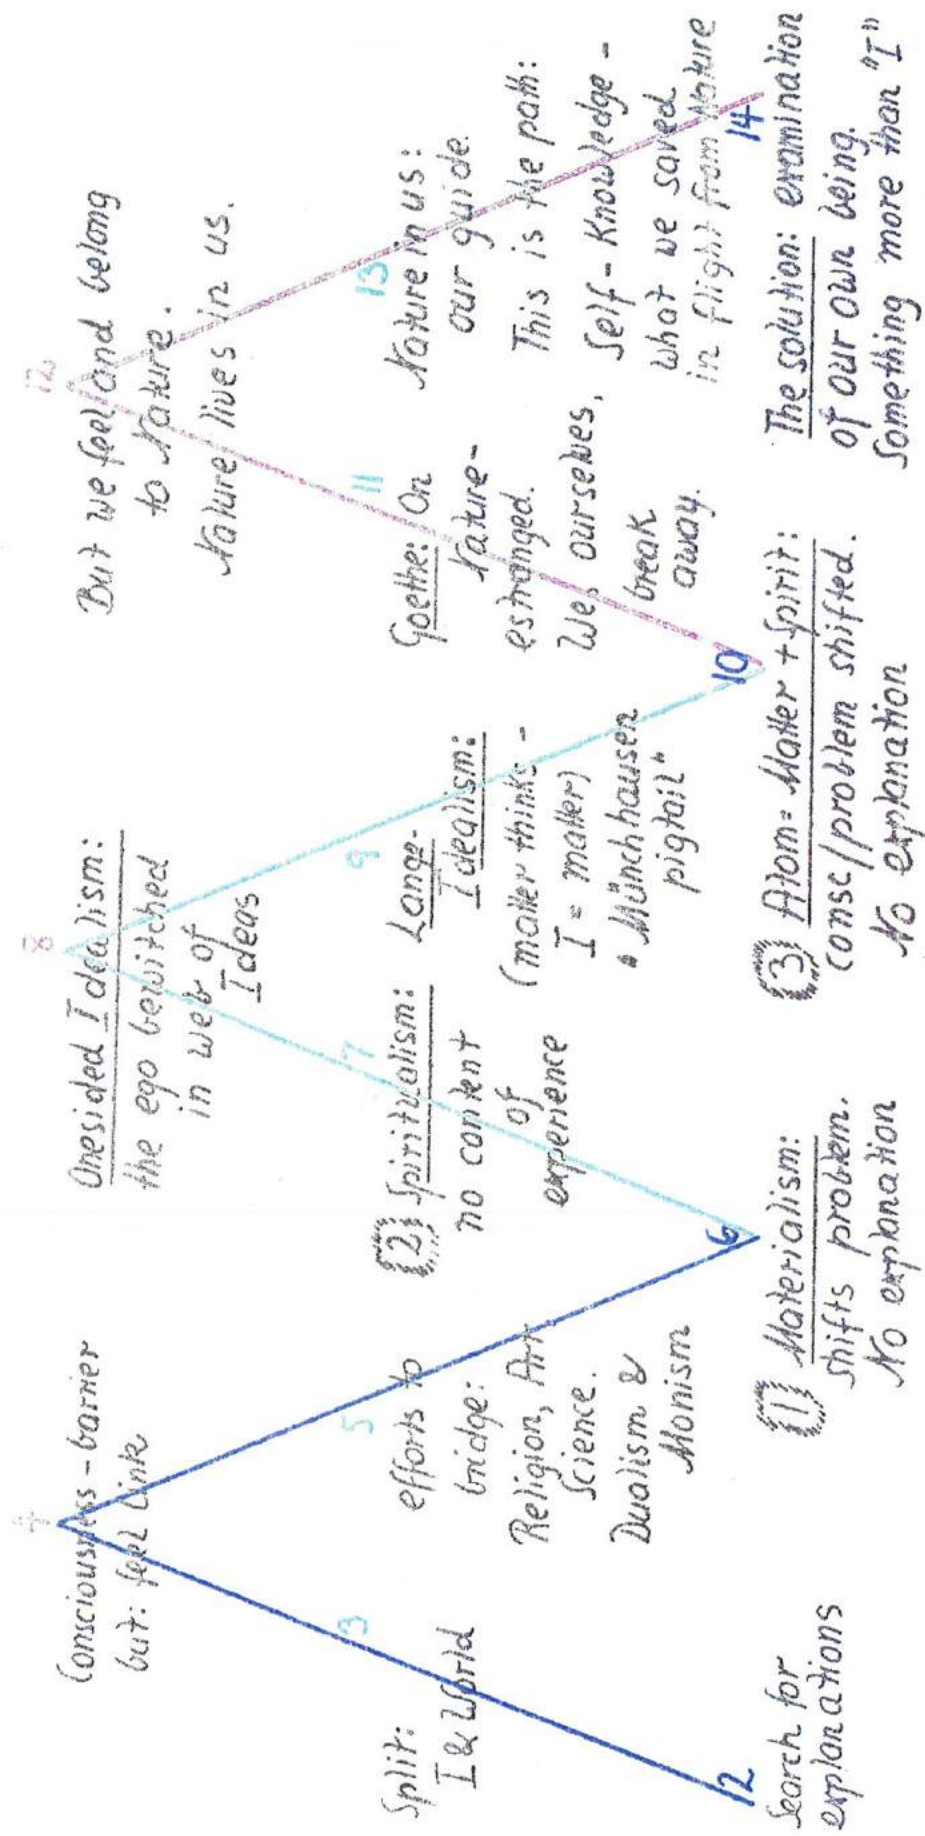 12
Search for
explanations
3
Split:
I & World
4
Consciousness - barrier
but: feel link
5
efforts to
bridge:
Religion, Art
Science.
Dualism &
Monism
6
{1} Materialism:
shifts problem.
No explanation
7
{2} Spiritualism:
no content
of
experience
8
Onesided Idealism:
the ego bewitched
in web of
Ideas
9
Lange-
Idealism:
(matter thinks -
I = matter)
"Münchhausen
pigtail"
10
{3} Atom = Matter + Spirit:
consc/problem shifted.
No explanation
11
Goethe: On
Nature-
estranged.
We, ourselves,
break
away.
12
But we feel and belong
to Nature.
Nature lives in us.
13
Nature in us:
our guide.
This is the path:
Self-Knowledge -
what we saved
in flight from Nature
14
The solution: examination
of our own being.
Something more than "I"